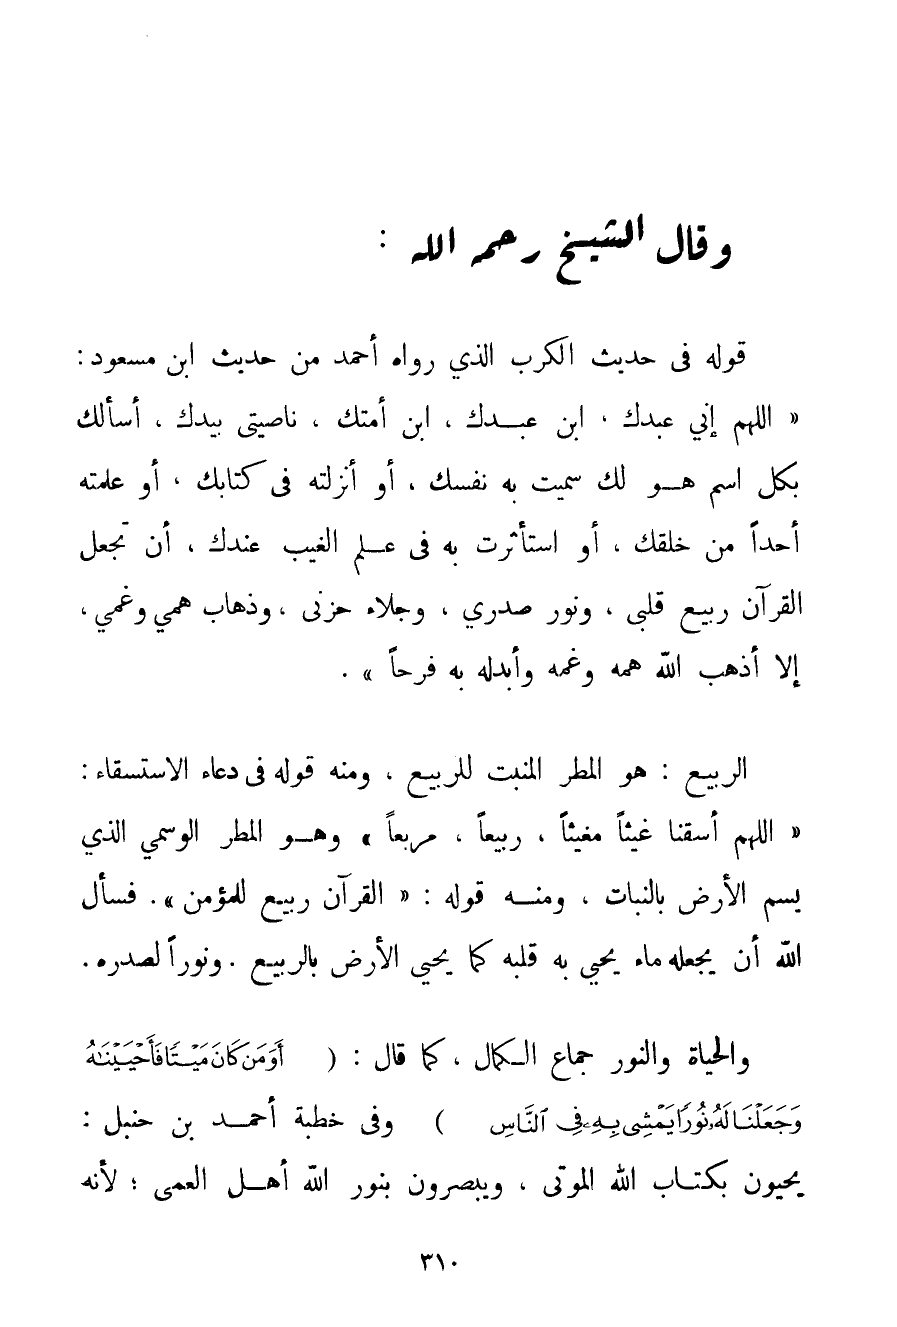 وقال الشيخ رحمه الله :
قوله فى حديث الكرب الذي رواه أحمد من حديث ابن مسعود :
« اللهم إني عبدك ، ابن عبدك ، ابن أمتك ، ناصيتى بيدك ، أسألك
بكل اسم هو لك سميت به نفسك ، أو أنزلته فى كتابك ، أو علمته
أحداً من خلقك ، أو استأثرت به فى علم الغيب عندك ، أن تجعل
القرآن ربيع قلبى ، ونور صدري ، وجلاء حزنى ، وذهاب همي وغمي ،
إلا أذهب الله همه وغمه وأبدله به فرحاً » .
الربيع : هو المطر المنبت للربيع ، ومنه قوله فى دعاء الاستسقاء :
« اللهم أسقنا غيثاً مغيثاً ، ربيعاً ، مربعاً » وهو المطر الوسمي الذي
يسم الأرض بالنبات ، ومنه قوله : « القرآن ربيع للمؤمن » . فسأل
الله أن يجعله ماء يحيي به قلبه كما يحيي الأرض بالربيع . ونوراً لصدره .
والحياة والنور جماع الكمال ، كما قال : ( أَوَمَن كَانَ مَيْتًا فَأَحْيَيْنَٰهُ
وَجَعَلْنَا لَهُۥ نُورًا يَمْشِى بِهِۦ فِى ٱلنَّاسِ ) وفى خطبة أحمد بن حنبل :
يحيون بكتاب الله الموتى ، ويبصرون بنور الله أهل العمى ؛ لأنه
٣١٠